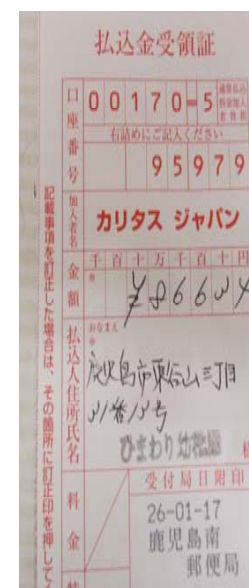 払込金受領証
口座番号
00170-5
通常払込料金加入者負担
右詰めにご記入ください
95979
加入者名
カリタス ジャパン
金額
千百十万千百十円
※
¥86634
払込人住所氏名
おなまえ
※
鹿児島市東谷山三丁目
31番13号
ひまわり幼稚園
様
料金
受付局日附印
26-01-17
鹿児島南
郵便局
記載事項を訂正した場合は、その箇所に訂正印を押して